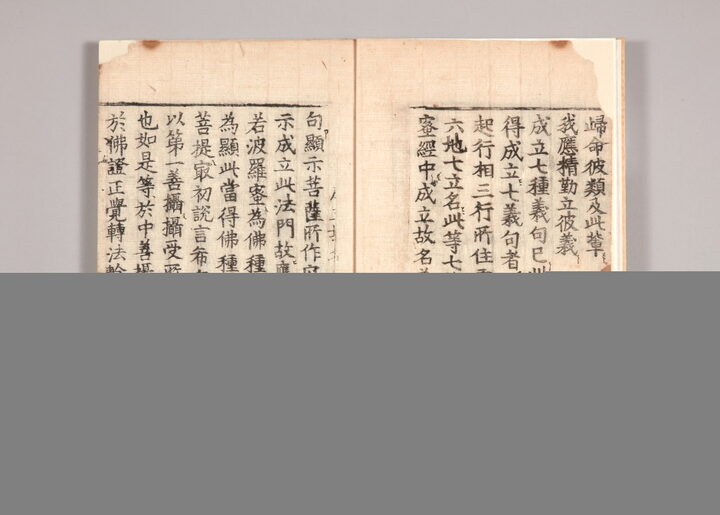 歸命彼類及此輩
我應精勤立彼義
成立七種義句已此
得成立七義句者
起行相三行所住
六地七立名此等七
蜜經中成立故名
句顯示菩薩所作
示成立此法門故應
若波羅蜜為佛種
為顯此當得佛種
菩提㝡初說言希
以第一善攝攝受
也如是等於中善攝
於佛證正覺轉法輪